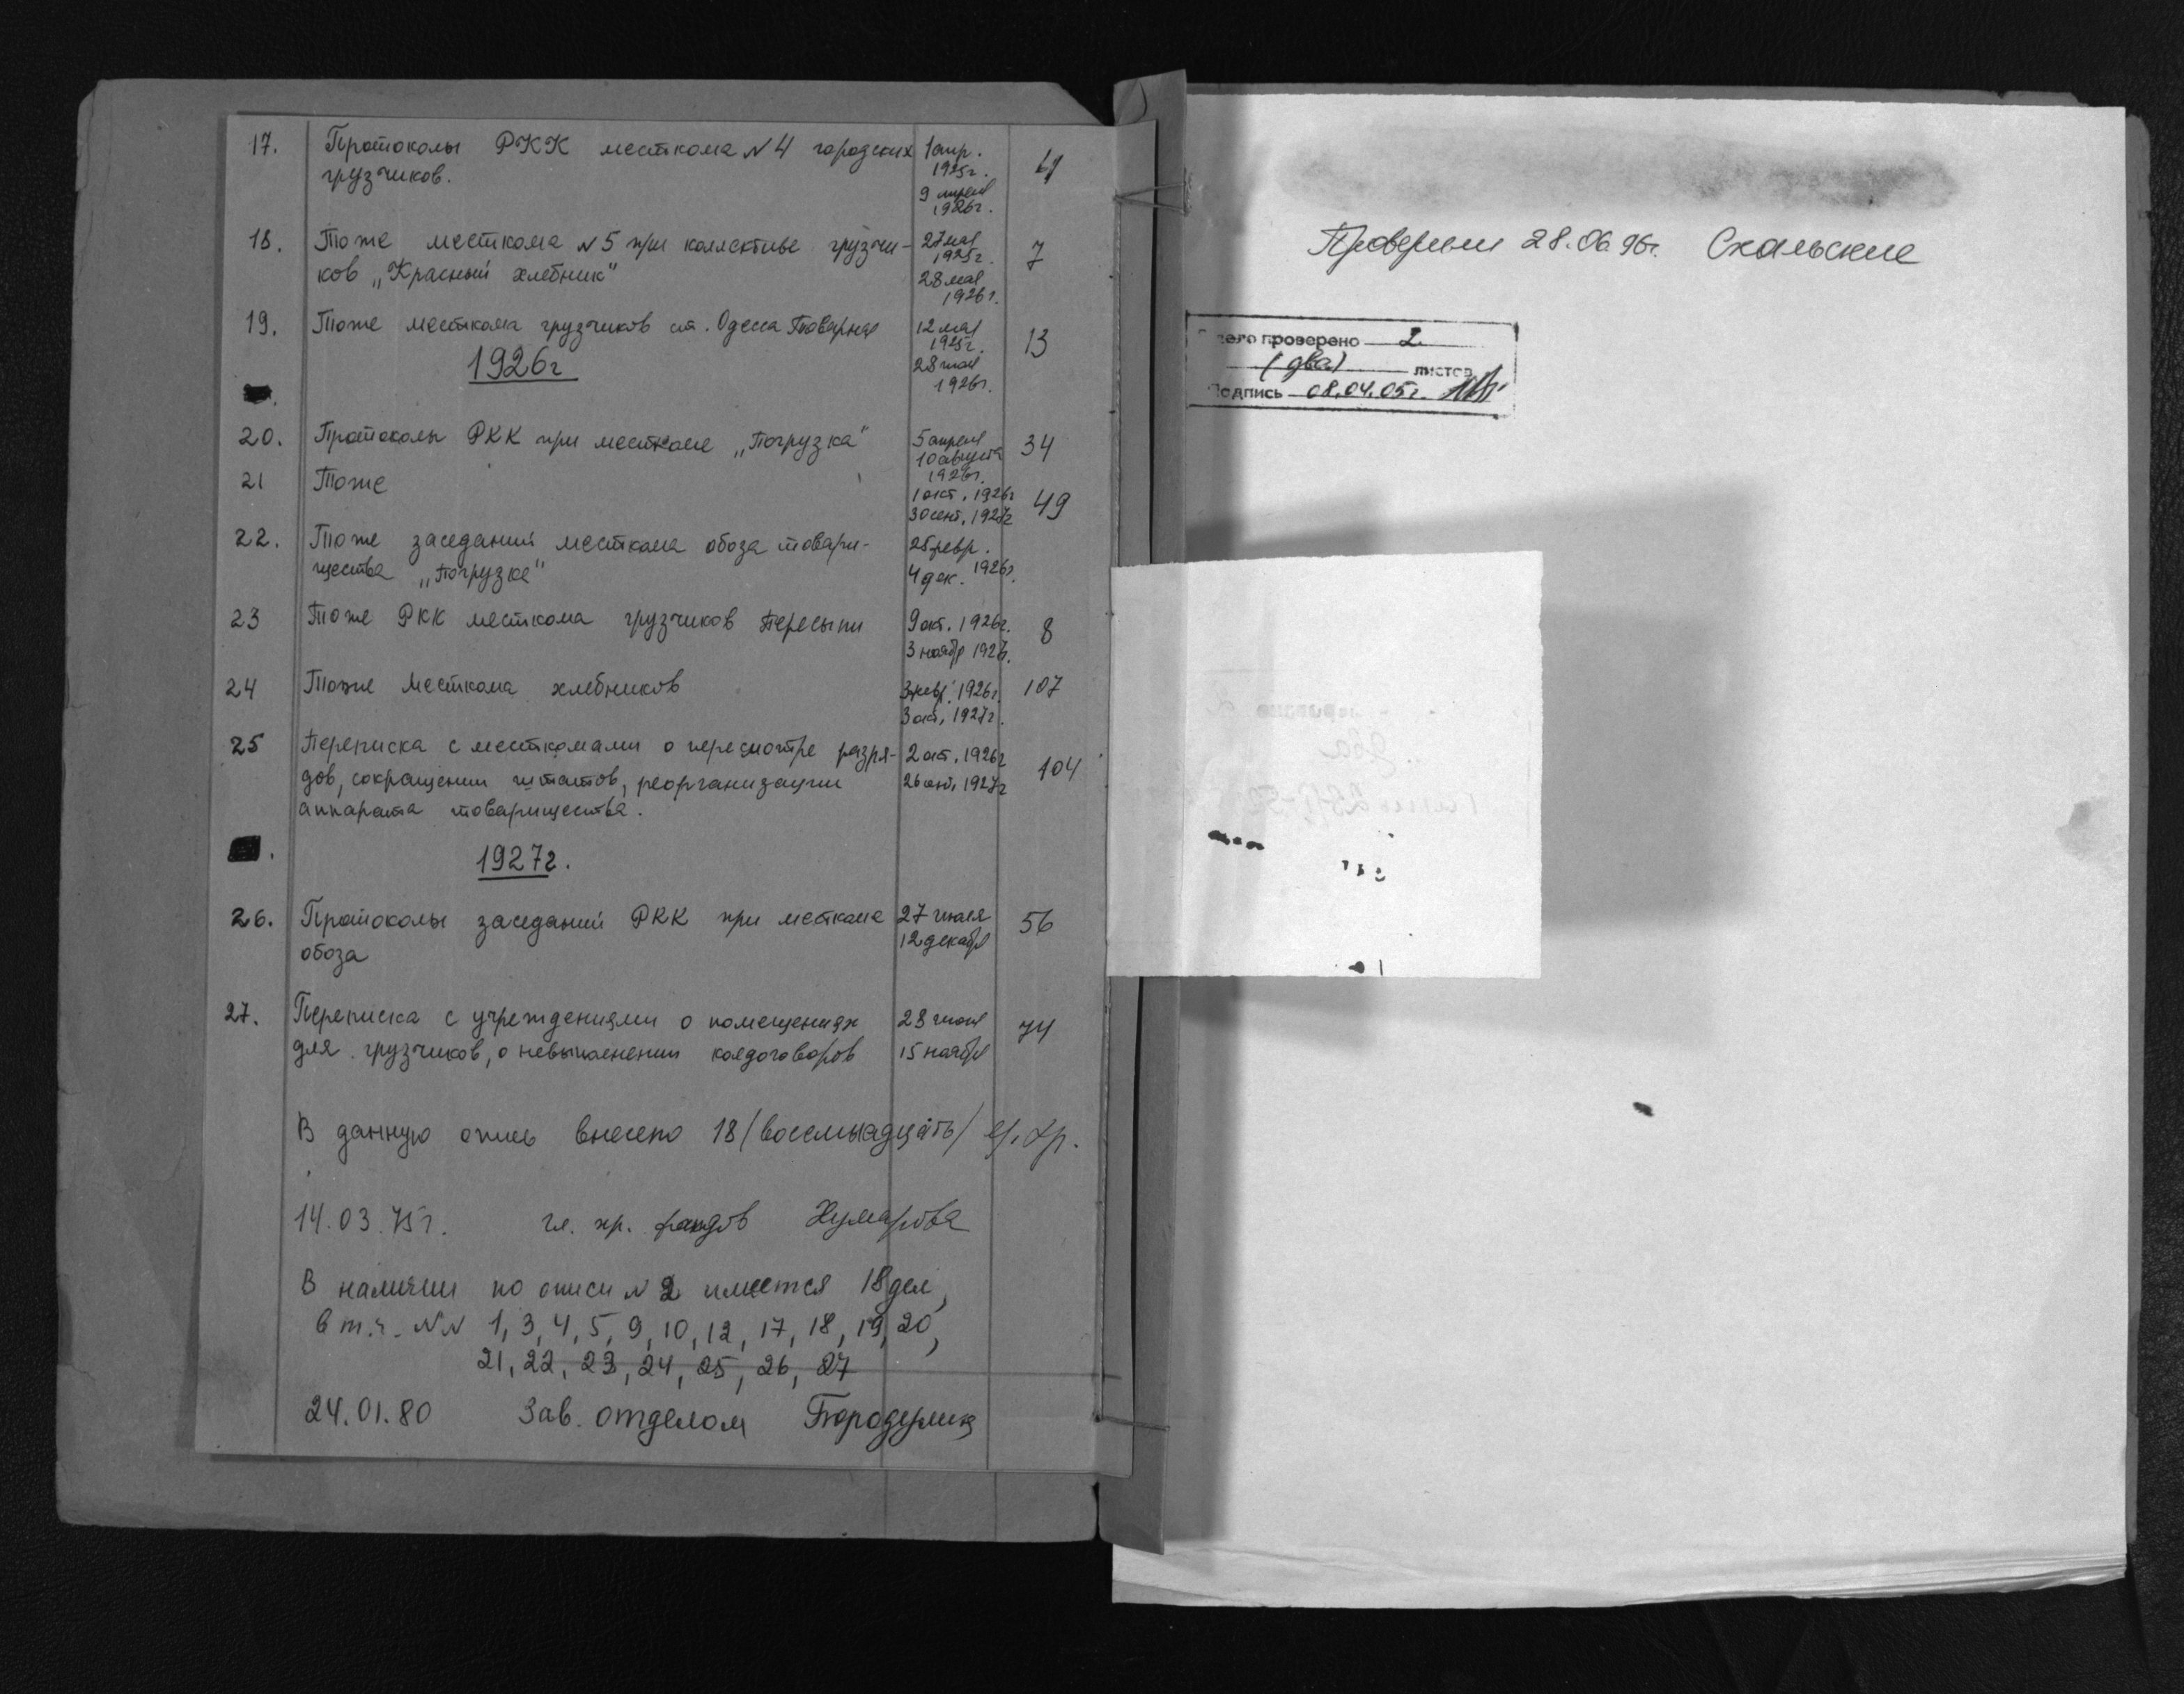 17. Протоколы РКК месткома №4 городских 1 апр. 1925г.
грузчиков. 9 апреля 1926г.
18. Тоже месткома №5 при коллективе грузчи- 27 мая 1925г. 7
ков „Красный хлебник" 28 мая 1926г.
19. Тоже месткома грузчиков ст. Одесса Товарная 12 мая 1925г. 13
28 мая 1926г.
1926г
20. Протоколы РКК при месткоме „Погрузка" 5 апреля 34
10 августа 1926г.
21 Тоже 1 окт. 1926г 49
30 сент. 1927г
22. Тоже заседаний месткома обоза товари- 25 февр.
щества „Погрузка" 4 дек. 1926г.
23 Тоже РКК месткома грузчиков Пересыпи 9 окт. 1926г. 8
3 ноября 1926.
24 Тоже Месткома хлебников 3 февр. 1926г. 107
3 окт. 1927г.
25 Переписка с месткомами о пересмотре разря- 2 окт. 1926г 104
дов, сокращении штатов, реорганизации 1927г
аппарата товарищества.
1927г.
26. Протоколы заседаний РКК при месткоме 27 июля 56
обоза 12 декабря
27. Переписка с учреждениями о помещениях 28 июня 74
для грузчиков, о невыполнении колдоговоров 15 ноября
В данную опись внесено 18 /восемнадцать/ ед. хр.
14.03.75г. гл. хр. фондов Хумарова
В наличии по описи №2 имеется 18 дел,
в т.ч. №№ 1, 3, 4, 5, 9, 10, 12, 17, 18, 19, 20,
21, 22, 23, 24, 25, 26, 27
24.01.80 Зав. отделом
Проверили 28.06.96г. Скальские
дело проверено 2
(два) листов
Подпись 08.04.05г.